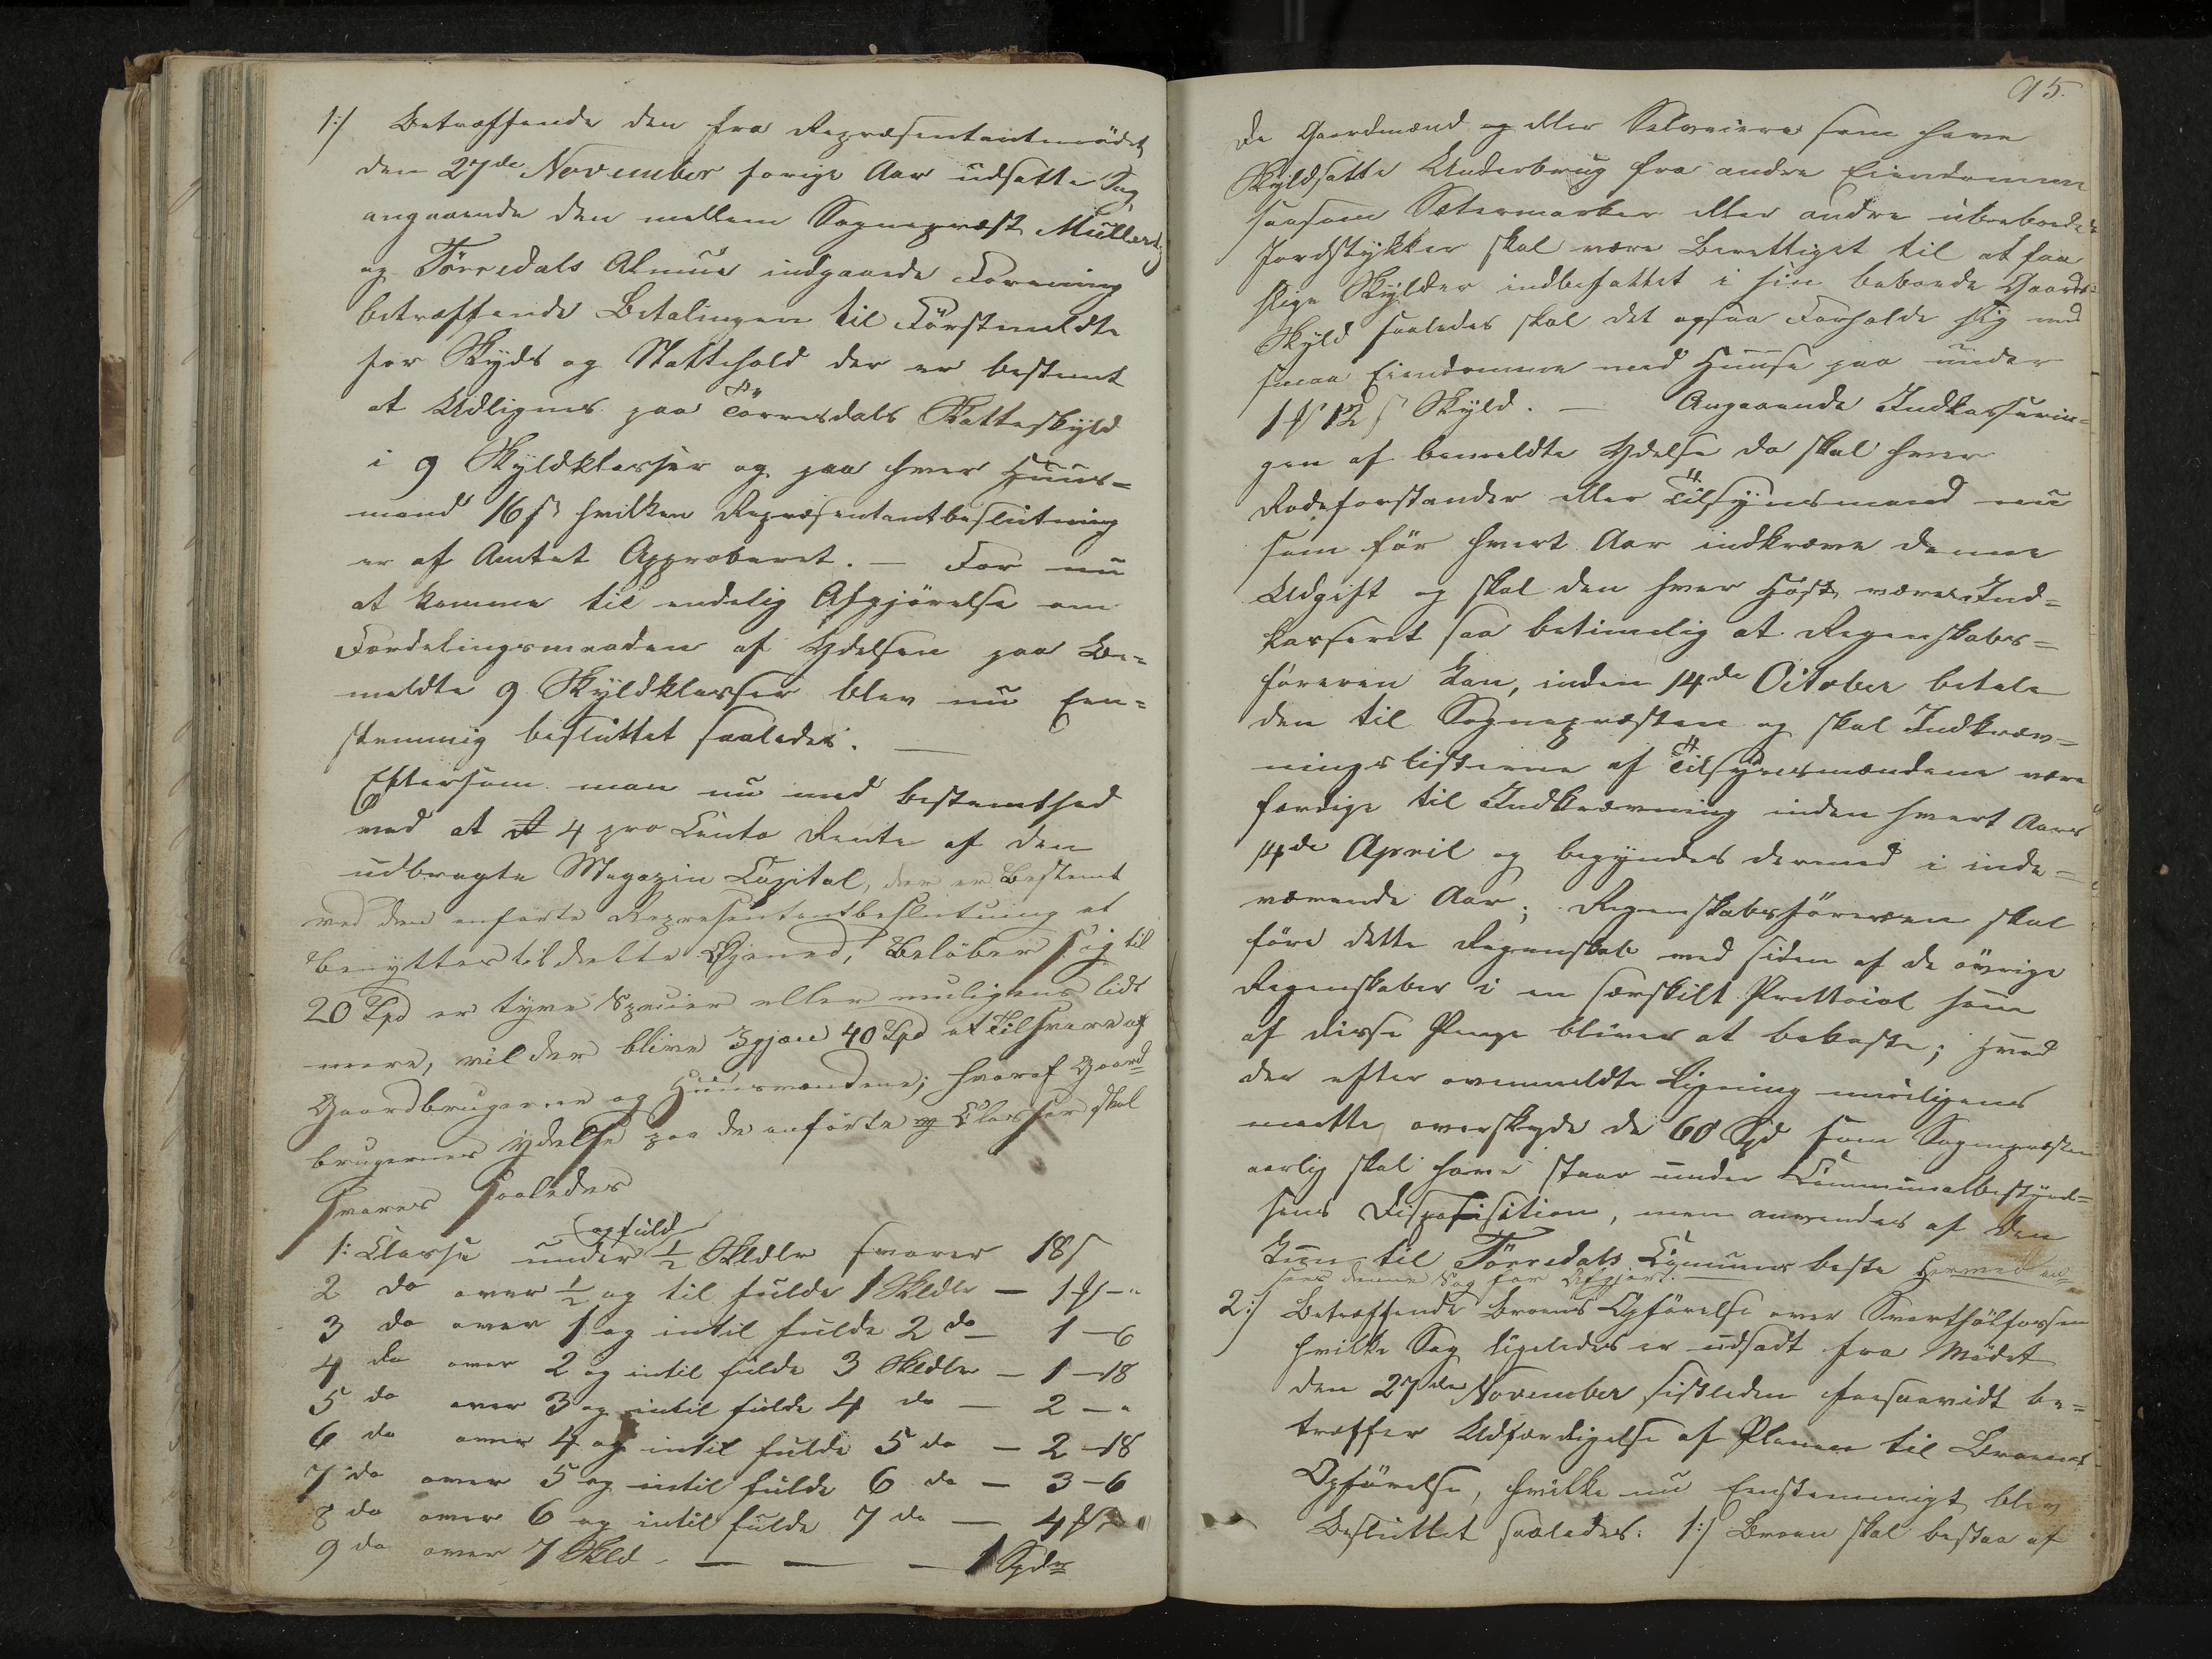 1:/ Betræffende den fra Repræsentantmødet
den 27de November forige Aar udsatte Sag
angaaende den mellem Sognepræst Müllertz
og Tørredals Almue indgaaede Forening
betræffende Betalingen til Førstmeldte
for Skyds og Stattehold der er bestemt
at Udlignes paa Tørresdals Matteskyld
i 9 Skyldklasser og paa hver Huus=
mand 16 s hvilken Repræsentantbeslutning
er af Amtet Approberet. — For nu
at komme til endelig Afgjörelse om
Fordelingsmaaden af Ydelsen paa Be=
meldte 9 Skyldklasser blev nu Een=
stemmig besluttet saaledes. —
Eftersom man nu med bestemthed
ved at 4 pro Cento Rente af den
udbragte Magazin Capital, der er Bestemt
ved den anførte Repræsentantbeslutning at
benyttes til dette Øjemed, Beløber sig til
20 Spd er tyve Spesier eller muligens lidt
mere, vil der blive Igjæn 40 Spd at Tilsvare af
Gaardbrugerne og Huusmændene; hvoraf Gaard=
brugernes ydelse paa de anførte 9 Classer skal
svares saaledes
opfuld
1: Classe under 1/2 Skldlr svarer 18 s
2 do over 1/2 og til fulde 1 Skldlr — 1 — "
3 do over 1 og intil fulde 2 do — 1 — 6
4 do over 2 og intil fulde 3 Skldlr — 1 — 18
5 do over 3 og intil fulde 4 do — 2 — "
6 do over 4 og intil fulde 5 do — 2 — 18
7 do over 5 og intil fulde 6 do — 3 — 6
8 do over 6 og intil fulde 7 do — 4
9 do over 7 Skld — — — 1 Spdr
95.
De Gaardmænd og eller Selveiere som have
Skyldsatte Underbrug fra andre Eiendomme
saasom Sætermarker eller andre ubeboede
Jordstykker skal være Berettiget til at faa
slige Skylder indbefattet i sin beboede Gaards=
Skyld saaledes skal det ogsaa Forholde sig med
smaa Eiendomme med Huuse paa under
1 12 s Skyld. — Angaaende Indkasserin=
gen af bemeldte Ydelse da skal hver
Rodeforstander eller Tilsynsmand nu
som før hvert Aar indkræve denne
Udgift og skal den hver Høst være Ind=
kasseret saa betimelig at Regenskabs=
føreren kan, inden 14de October betale
den til Sognepræsten og skal Indkræv=
ningslisterne af Tilsynsmændene være
færdige til Indkrævning inden hvert Aars
14de April og begyndes dermed i inde=
værende Aar; Regenskabsføreren skal
føre dette Regenskab ved siden af de øvrige
Regenskaber i en særskilt Prottocol som
af disse Penge bliver at bekoste; hvad
der efter ovenmeldte Ligning muligens
maatte overskyde de 60 Spd som Sognepræsten
aarlig skal have staar under Communalbestyrel=
sens Disposisition, men anvendes af den
kun til Tørredals Comunes beste Hermed an=
sees denne Sag for Afgjort. —
2:/ Betræffende Broens Opførelse over Svarthølfossen
hvilke Sag ligeledes er udsadt fra Mødet
den 27de November sistleden forsaavidt be=
træffer Udfærdigelse af Planen til Broens
Opførelse, hvilke nu Eenstemmigt blev
Besluttet saaledes: 1:/ Broen skal bestaa af